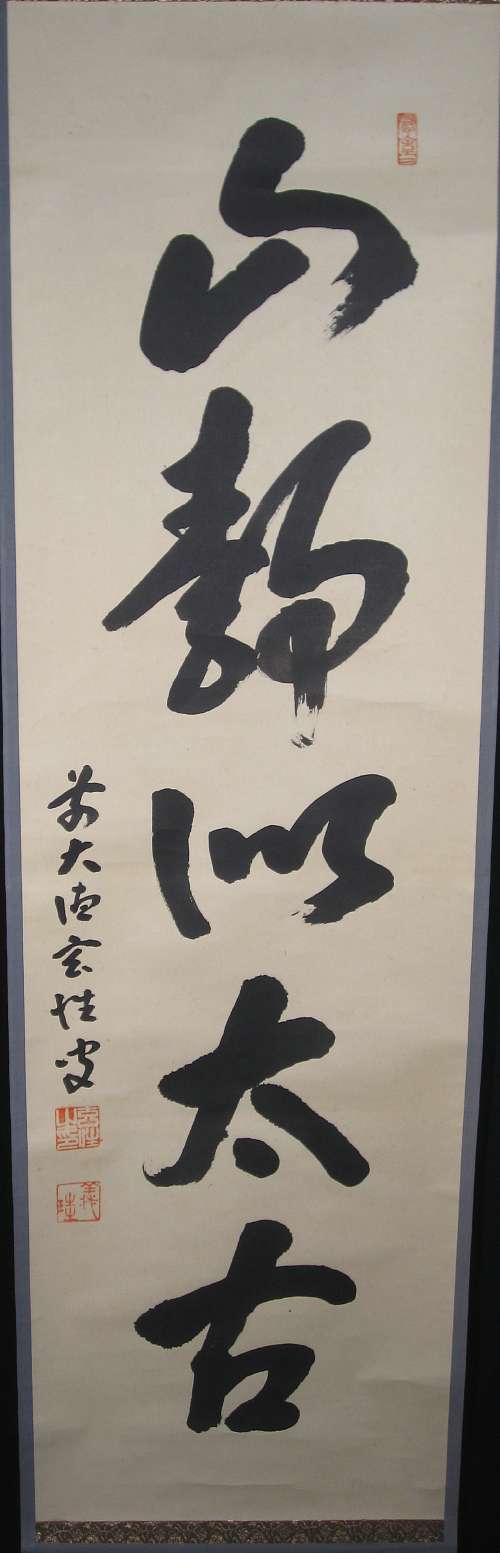 山静似太古
前大徳玄性叟